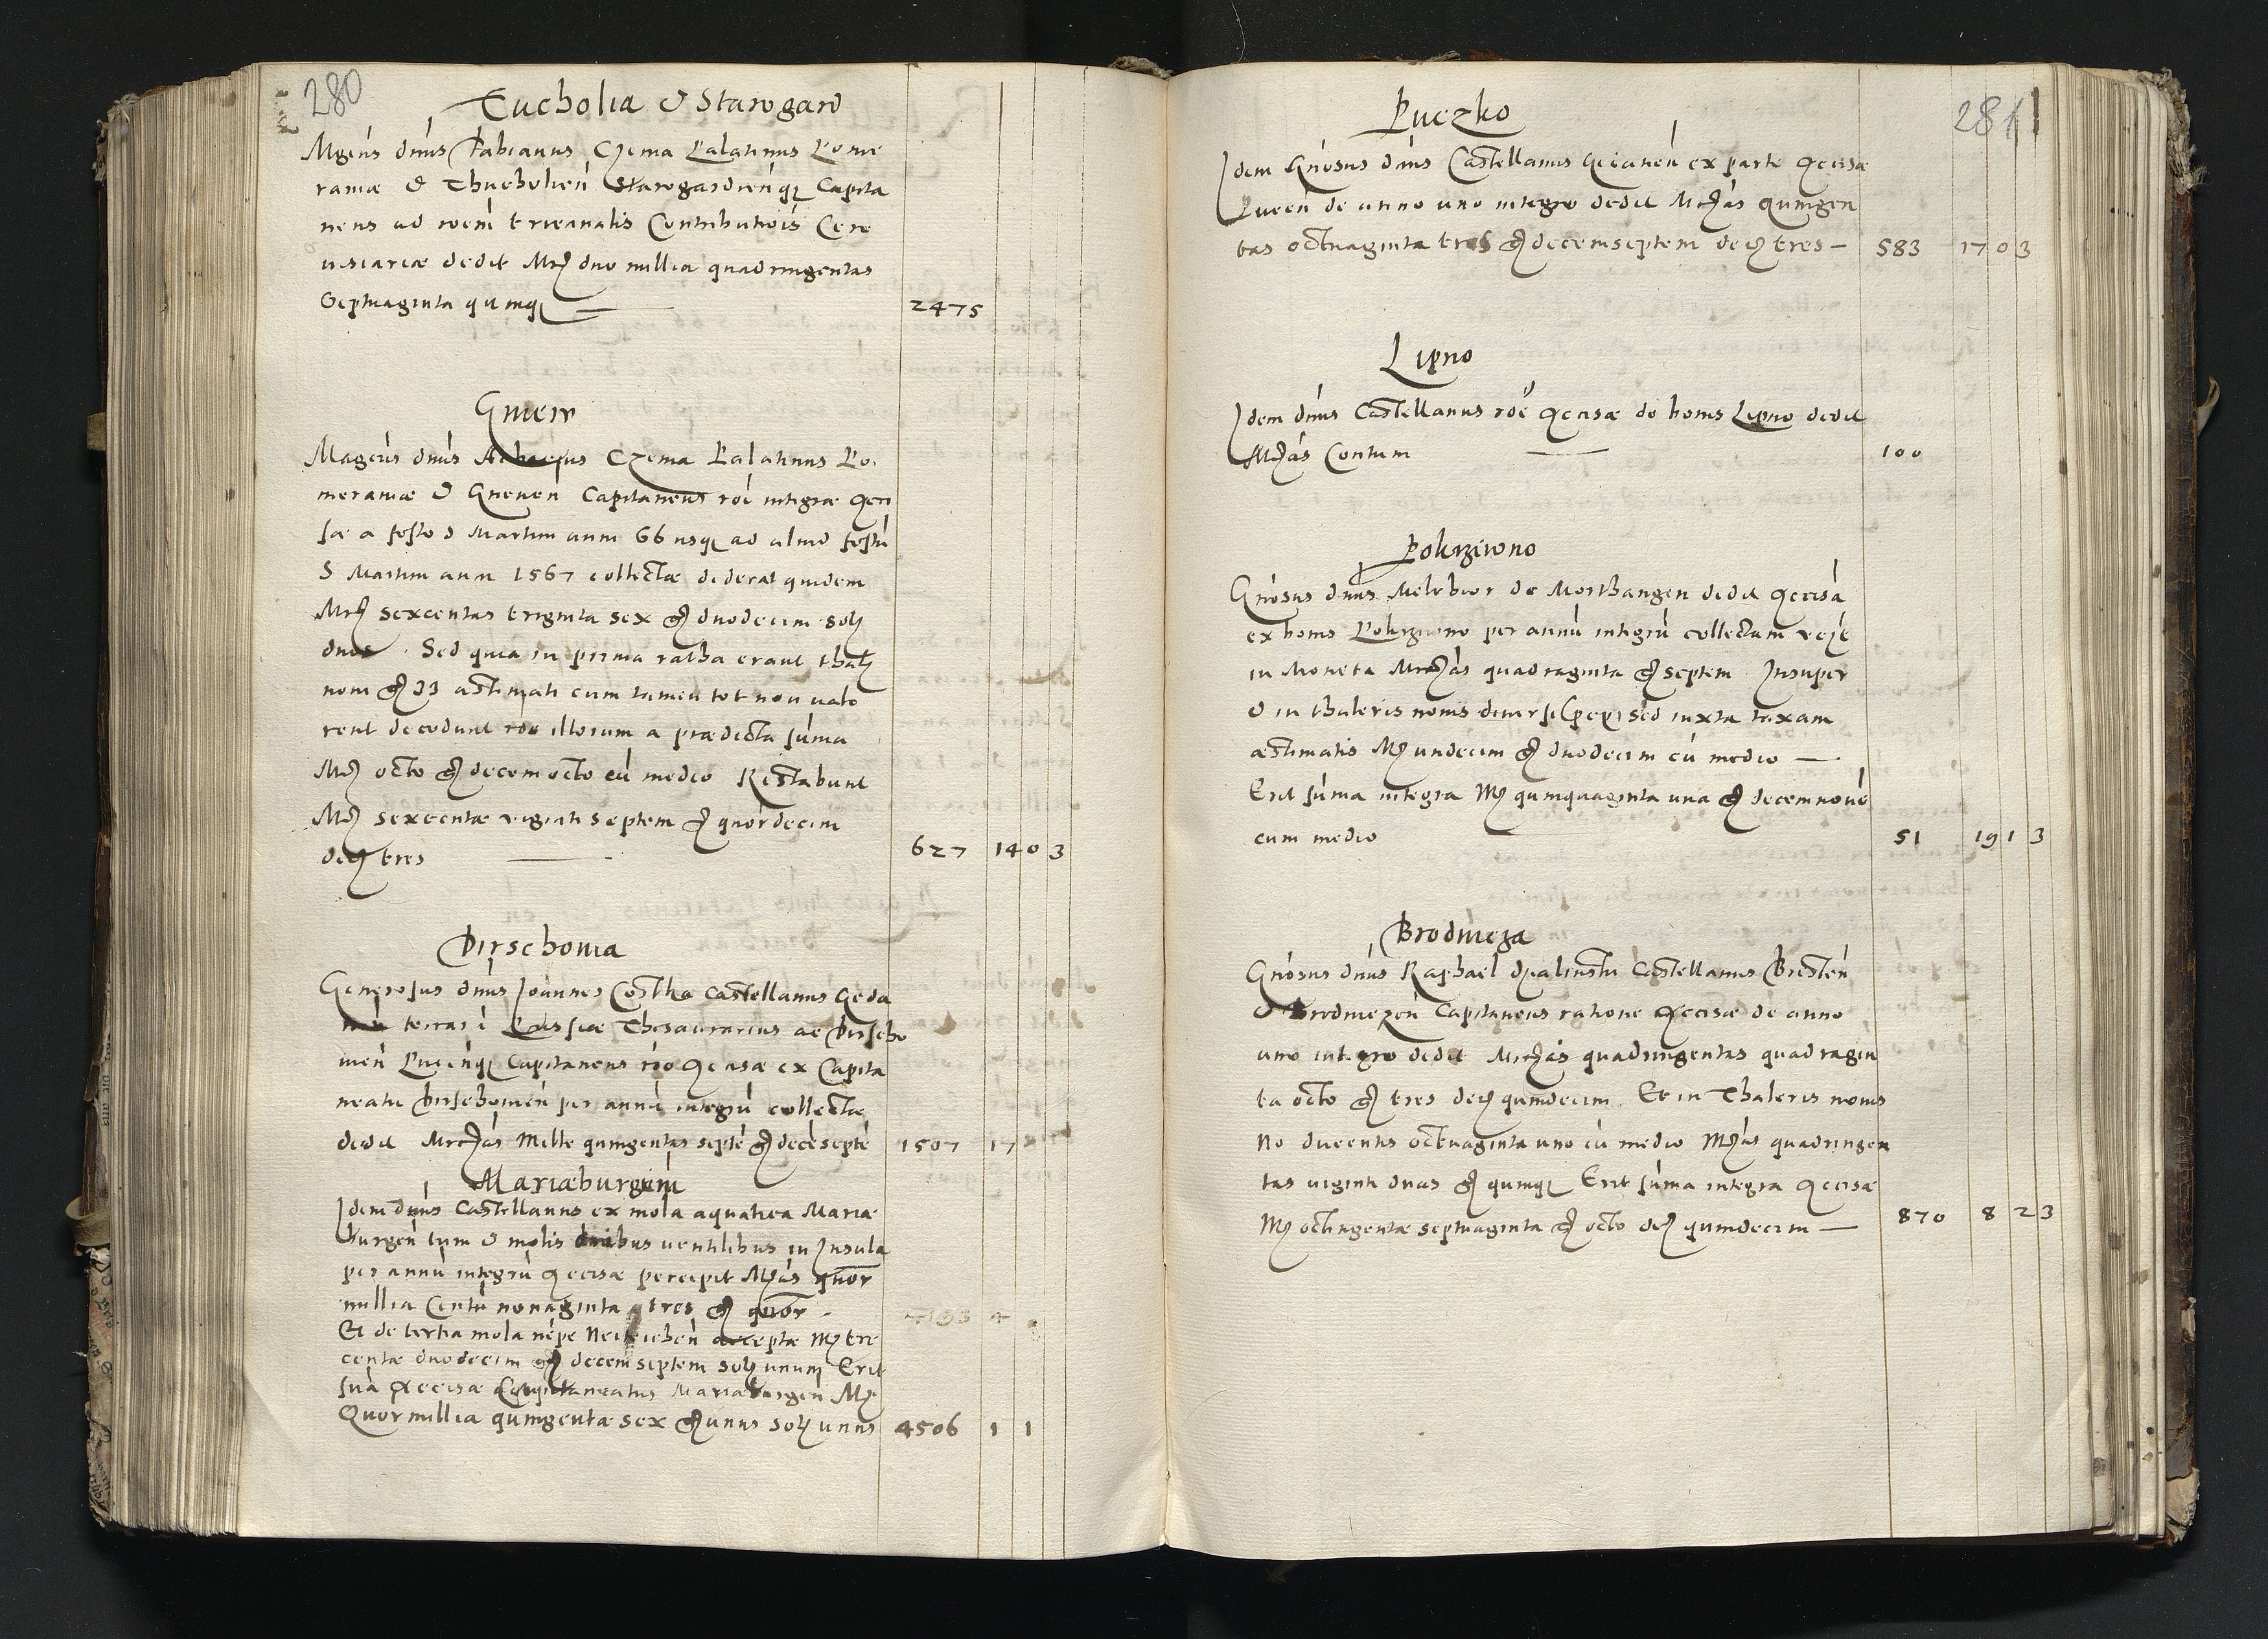 280
Tucholia & Starogard
Mgcus dnus Fabianus Czema Palatinus Pome
raniæ & Thucholien Starogardienq Capita
neus ad roem trieanalis Contributiois Cere
visiariæ dedit Mrc duo millia quadringentas
Septuaginta quinq
2475
Gniew
Magcus dnus Achacius Czema Palatinus Po
meraniæ & Gneven Capitaneus roe integræ Acci
sæ a festo D Martini anni 66 usq ad aliud festu
S Martini anni 1567 collectæ dederat quidem
Mrc sexcentas triginta sex gr duodecim sol
duos . Sed quia in prima ratha erant thal
noni gr 33 æstimati cum tamen tot non vale
rent decedunt roe illorum a prædicta suma
Mrc octo gr decem octo cu medio Restabunt
Mrc sexcentæ viginti septem gr quordecim
den tres
627 14 0 3
Dirschovia
Generosus dnus Joannes Costka Castellanus Geda
nen terrar Prussiæ Thesaurarius ac Dirscho
vien Pucenq Capitaneus roe Accisæ ex Capita
neatu Dirschovien per annu integru collectæ
dedit Mrcas Mille quingentas septe gr decesepte
1507 17
Mariæburgum
Idem Dnus Castellanus ex mola aquatica Mariæ
burgen tum & molis duibus ventilibus in Insula
per annu integru Accisæ percepit Mrcas quor
millia Centu nonaginta tres gr quor .
4193 4
Et de tertia mola nepe Neiteichen acceptæ Mrc tre
centæ duodecim gr decem septem sol unum Erit
sua Accisæ Capitaneatus Mariæburgen Mrc
Quor millia quingentæ sex gr unus sol unus
4506 1 1
281
Puczko
Idem Gnosus dnus Castellanus Gedanen ex parte Accisæ
Pucen de anno uno integro dedit Mrcas quingen
tas octuaginta tres gr decemseptem den tres
583 17 0 3
Lipno
Idem dnus Castellanus roe Accisæ de bonis Lipno dedit
Mrcas Centum
100
Pokrziwno
Gnosus dnus Melchior de Morthangen dedit Accisa
ex bonis Pokrziwno per annu integru collectam
in Moneta Mrcas quadraginta gr septem Insuper
& in thaleris novis sed iuxta taxam
æstimatis Mrc undecim gr duodecim cu medio
Erit suma integra Mrc quinquaginta una gr decemnove
cum medio
51 19 1 3
Brodnicza
Gnosus dnus Raphael Dzialinski Castellanus Bresten
& Brodniczen Capitaneus ratione Accisæ de anno
uno integro dedit Mrcas quadringentas quadragin
ta octo gr tres den quindecim Et in Thaleris novis
No ducentis octuaginta uno cu medio Mrcas quadringen
tas viginti duas gr quinq Erit suma integra Accisæ
Mrc octingentæ septuaginta gr octo den quindecim
870 8 2 3